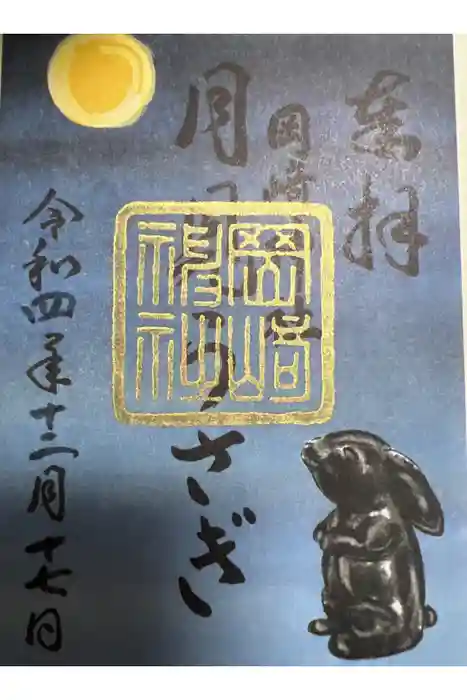 奉拝
岡崎
月のうさぎ
令和四年十二月十七日
岡崎
神社